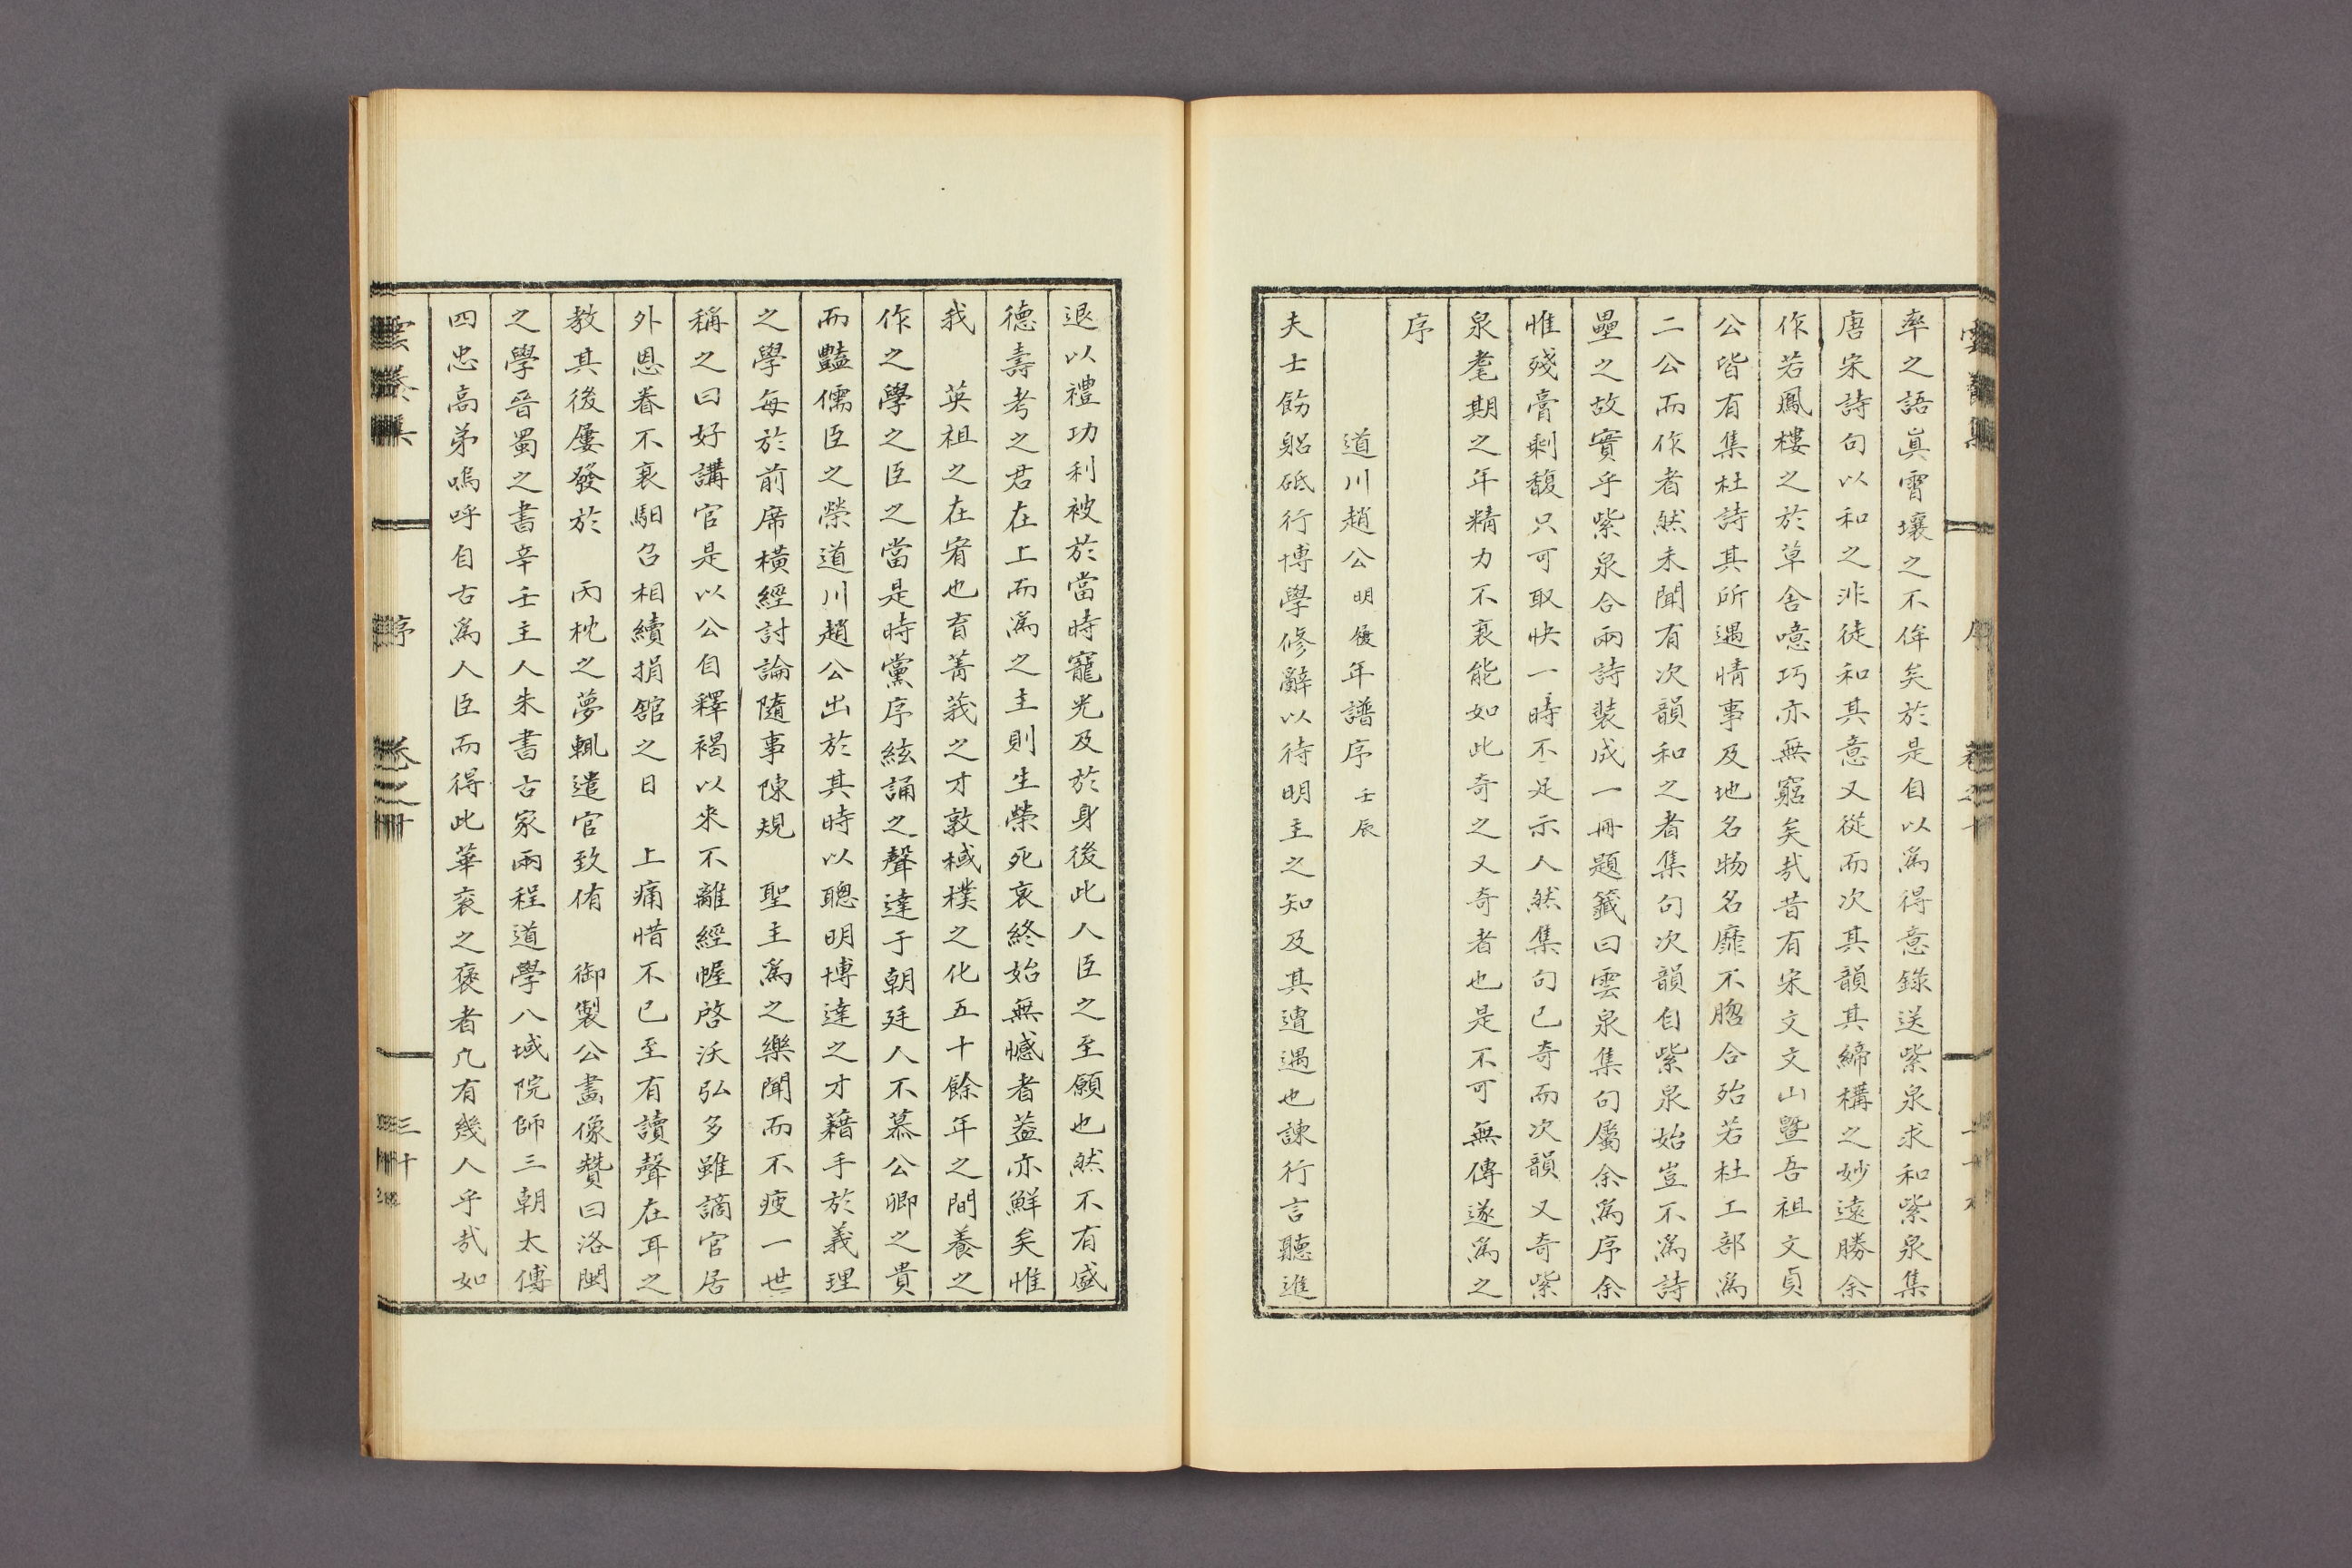 率之語眞霄壤之不侔矣於是自以爲得意錄送紫泉求和紫泉集
唐宋詩句以和之非徒和其意又從而次其韻其締構之妙遠勝余
作若鳳樓之於草舍噫巧亦無窮矣哉昔有宋文文山曁吾祖文貞
公皆有集杜詩其所遇情事及地名物名靡不脗合殆若杜工部爲
二公而作者然未聞有次韻和之者集句次韻自紫泉始豈不爲詩
壘之故實乎紫泉合兩詩裝成一冊題籤曰雲泉集句屬余爲序余
惟殘膏剩馥只可取快一時不足示人然集句已奇而次韻又奇紫
泉耄期之年精力不衰能如此奇之又奇者也是不可無傳遂爲之
序
道川趙公明履年譜序壬辰
夫士飭躬砥行博學修辭以待明主之知及其遭遇也諫行言聽進
退以禮功利被於當時寵光及於身後此人臣之至願也然不有盛
德壽考之君在上而爲之主則生榮死哀終始無憾者蓋亦鮮矣惟
我　英祖之在宥也育菁莪之才敦棫樸之化五十餘年之間養之
作之學之臣之當是時黨序絃誦之聲達于朝廷人不慕公卿之貴
而豔儒臣之榮道川趙公出於其時以聰明博達之才藉手於義理
之學每於前席橫經討論隨事陳規　聖主爲之樂聞而不疲一世
稱之曰好講官是以公自釋褐以來不離經幄啓沃弘多雖謫官居
外恩眷不衰馹召相續捐館之日　上痛惜不已至有讀聲在耳之
教其後屢發於　丙枕之夢輒遣官致侑　御製公畫像贊曰洛閩
之學晉蜀之書辛壬主人朱書古家兩程道學八域院師三朝太傅
四忠高弟嗚呼自古爲人臣而得此華袞之褒者凡有幾人乎哉如
雲養集　序　卷之十　三十